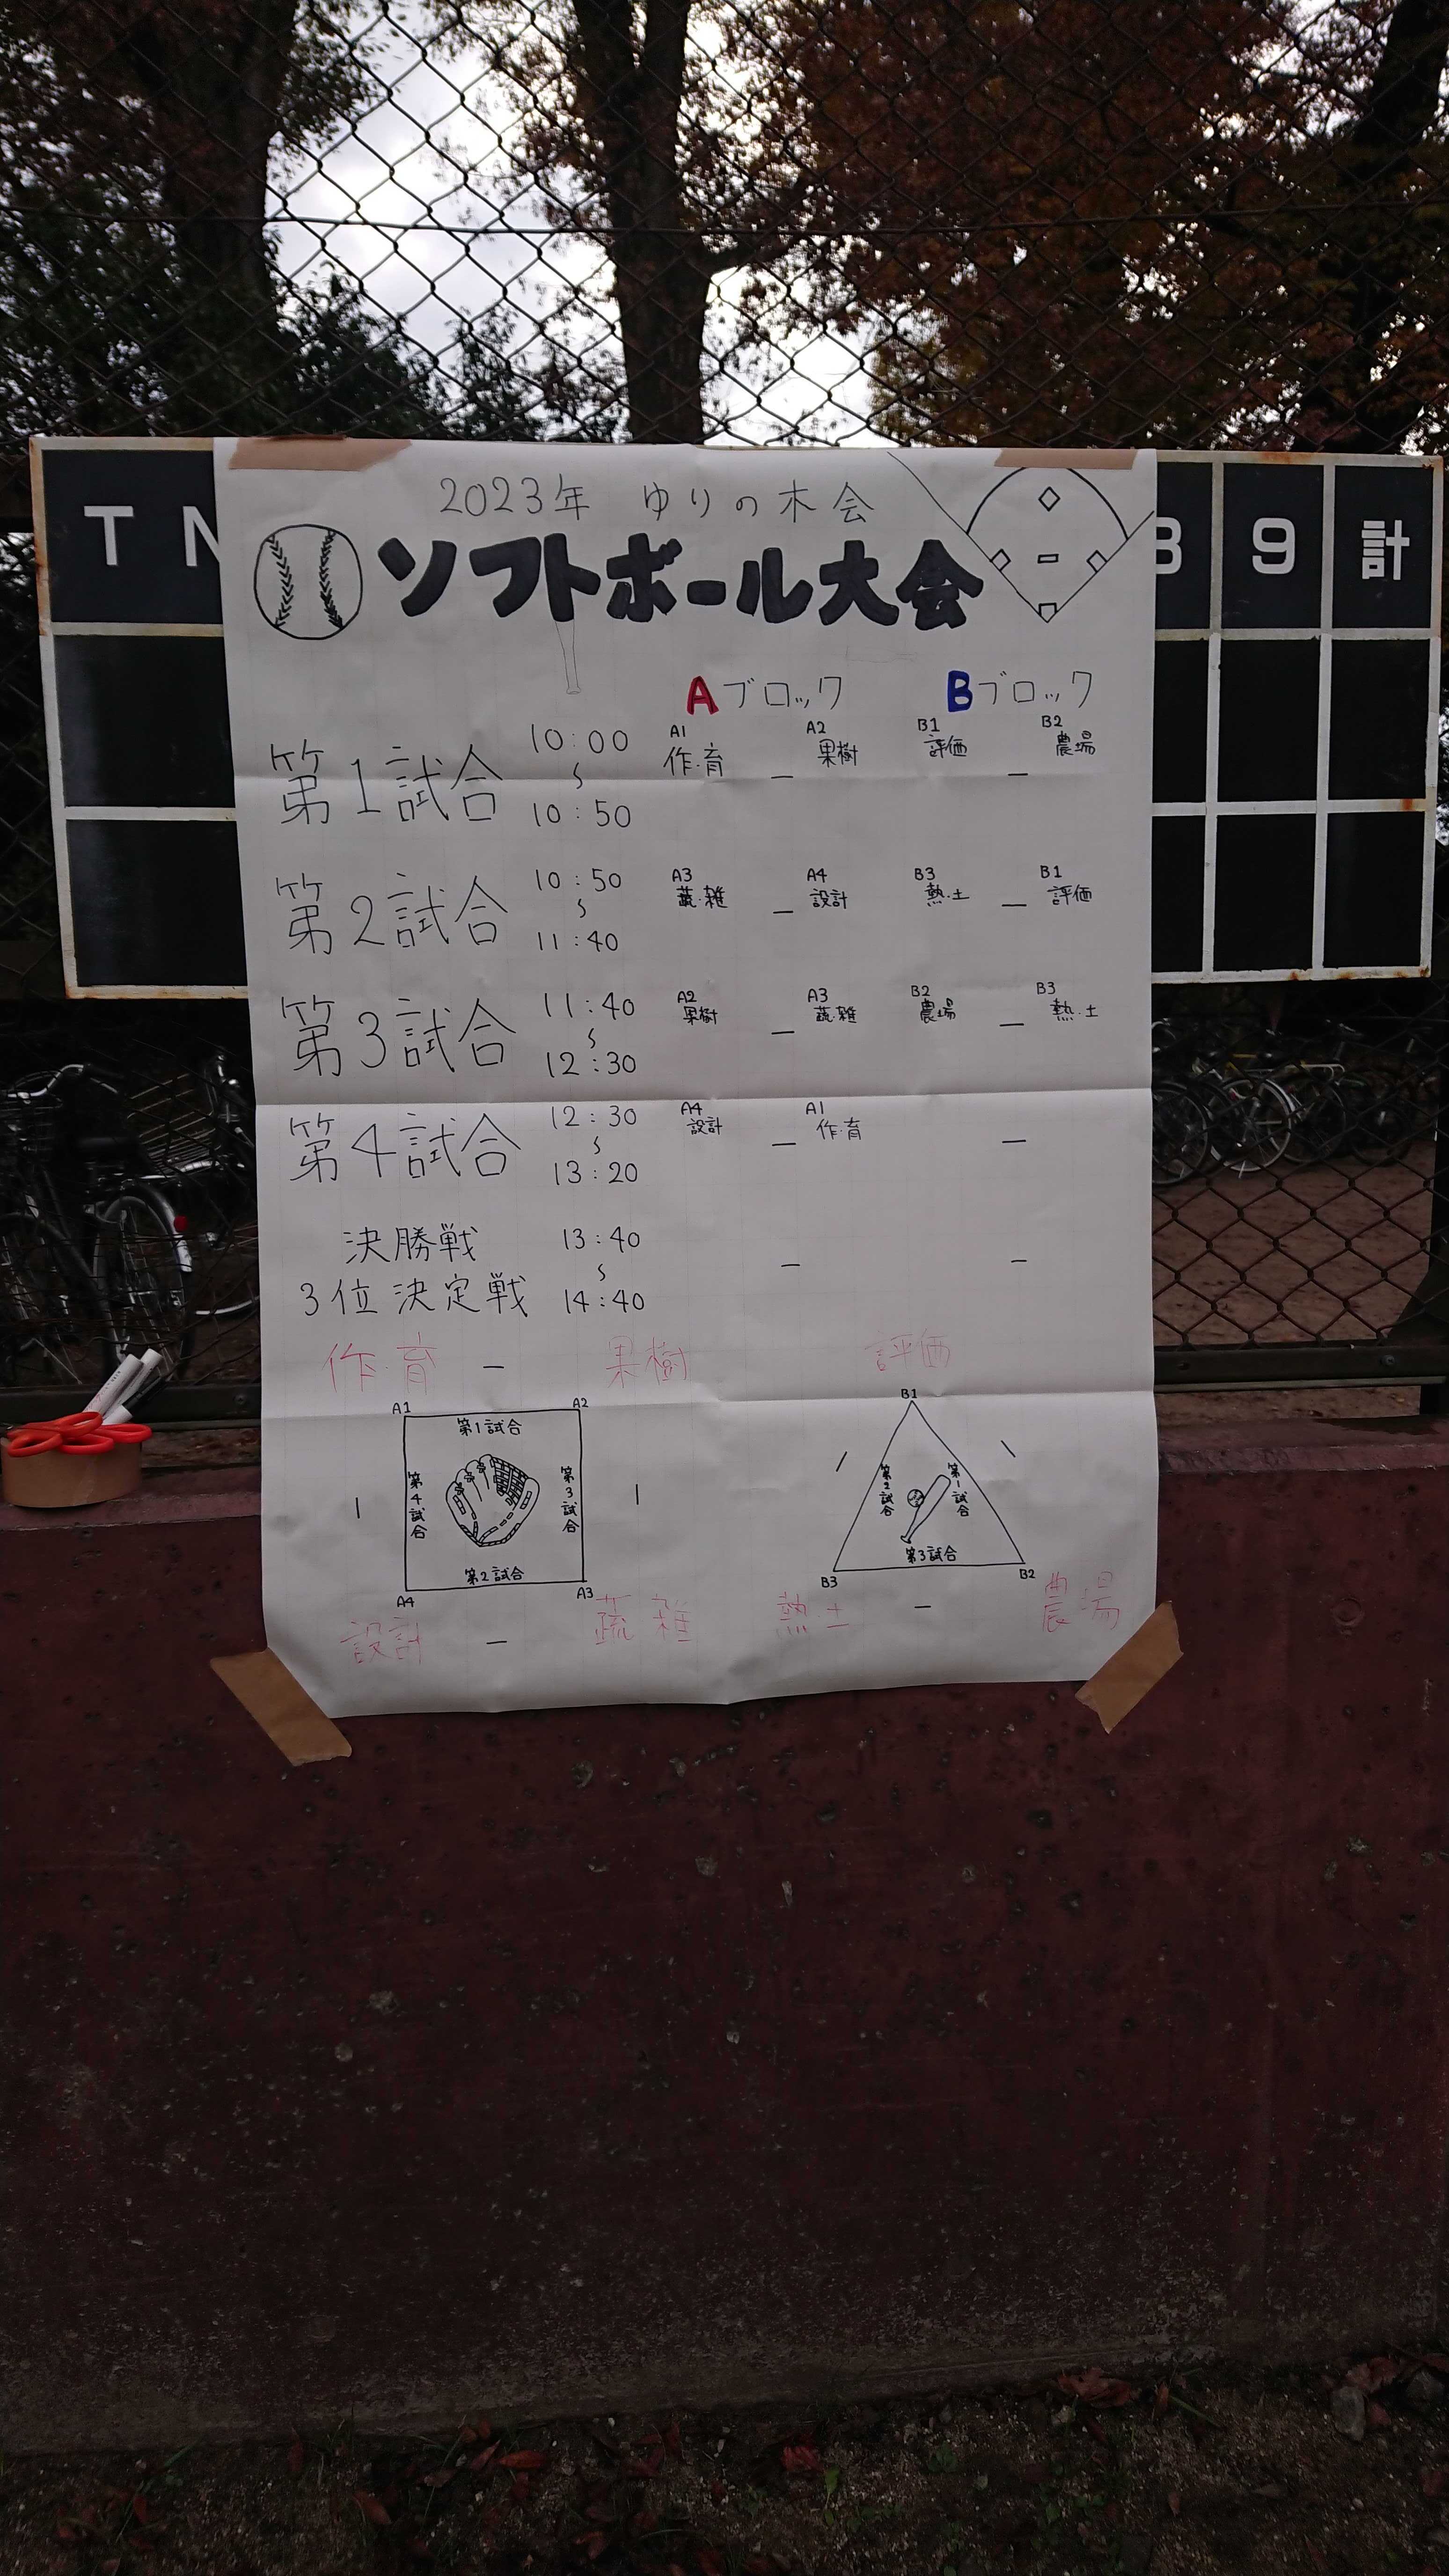 T N
8 9 計
2023年 ゆりの木会
ソフトボール大会
Aブロック Bブロック
第1試合 10:00 〜 10:50 A1 作・育 − A2 果樹 B1 評価 − B2 農場
第2試合 10:50 〜 11:40 A3 蔬・雑 − A4 設計 B3 熱・土 − B1 評価
第3試合 11:40 〜 12:30 A2 果樹 − A3 蔬・雑 B2 農場 − B3 熱・土
第4試合 12:30 〜 13:20 A4 設計 − A1 作・育 −
決勝戦 13:40
〜 − −
3位決定戦 14:40
作・育 − 果樹 評価
A1 A2 B1
第1試合
第4試合 第3試合 第2試合 第1試合
第2試合 第3試合
A4 A3 B3 B2
設計 − 蔬・雑 熱・土 − 農場